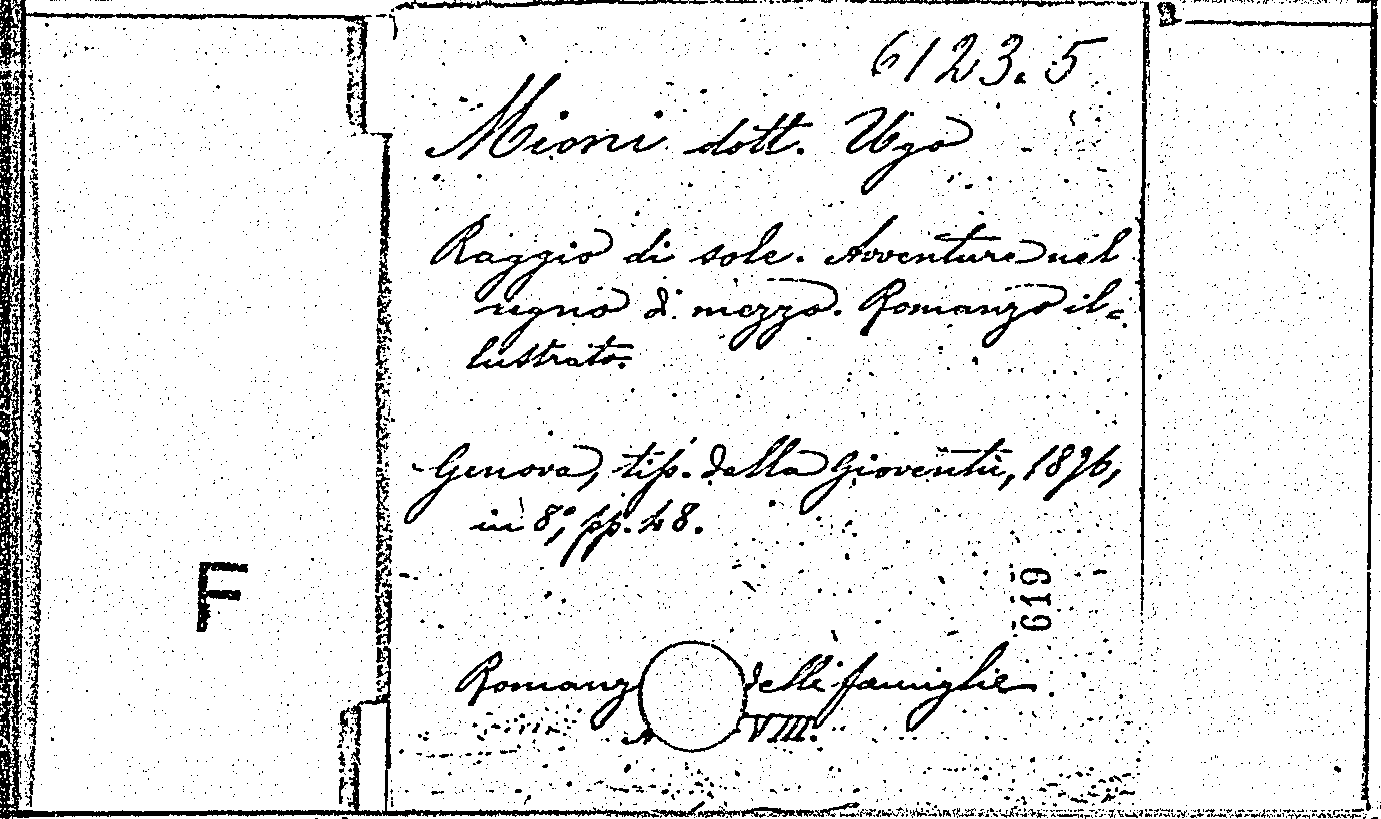 6123.5
Mioni dott. Ugo
Raggio di sole. Avventure nel
regno di mezzo. Romanzo il-
lustrato.
Genova, tip. della Gioventù, 1896,
in 8°, pp. 48.
619
F
delle famiglie
VIII.